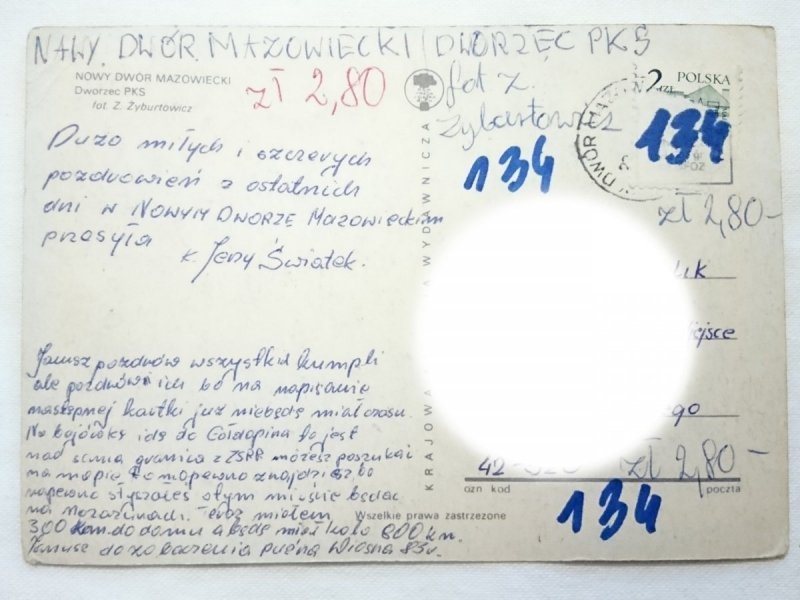 NAWY. DWÓR. MAZOWIECKI / DWORZEC PKS
fot z.
Zybartowicz
NOWY DWÓR MAZOWIECKI
Dworzec PKS
fot. Z. Żyburtowicz
zł 2,80
2 zł POLSKA
134
134
zł 2,80-
Dużo miłych i szczerych
pozdrowień z ostatnich
dni w NOWYM DWORZE MAZOWIECKIM
przesyła
K. Jerzy Świątek.
Janusz pozdrów wszystkich kumpli
ale pozdrów ich bo na napisanie
następnej kartki już niebędę miał czasu.
Na bojówkę idę do Gołdapina to jest
nad samą granicą z ZSRR możesz poszukać
na mapie to napewno znajdziesz bo
napewno słyszałeś o tym mieście będąc
na mazurach. Teraz miałem
300 km. do domu a będę miał koło 600 km.
Janusz do zobaczenia wiosna 83r.
KRAJOWA
WYDAWNICZA
ejsce
ego
42-
zł 2,80-
ozn kod
poczta
134
Wszelkie prawa zastrzeżone